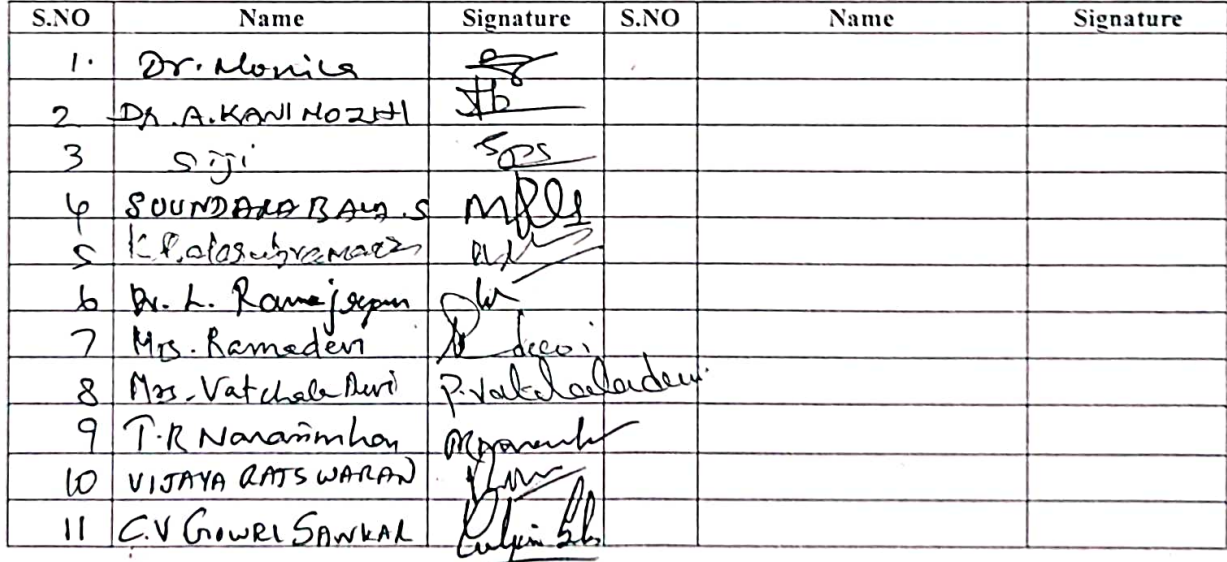 S.NO Name Signature S.NO Name Signature
1. Dr. Monica
2 DR. A. KANIMOZHI
3 Siji
4 SOUNDARA BALA. S
5 K. Balasubramani
6 Dr. L. Ramajeyam
7 Mrs. Ramadevi R devi
8 Mrs. Vatchala Devi P. Vatchaladevi
9 T.R Narasimhan
10 VIJAYA RAJSWARAN
11 C.V GOWRI SANKAR